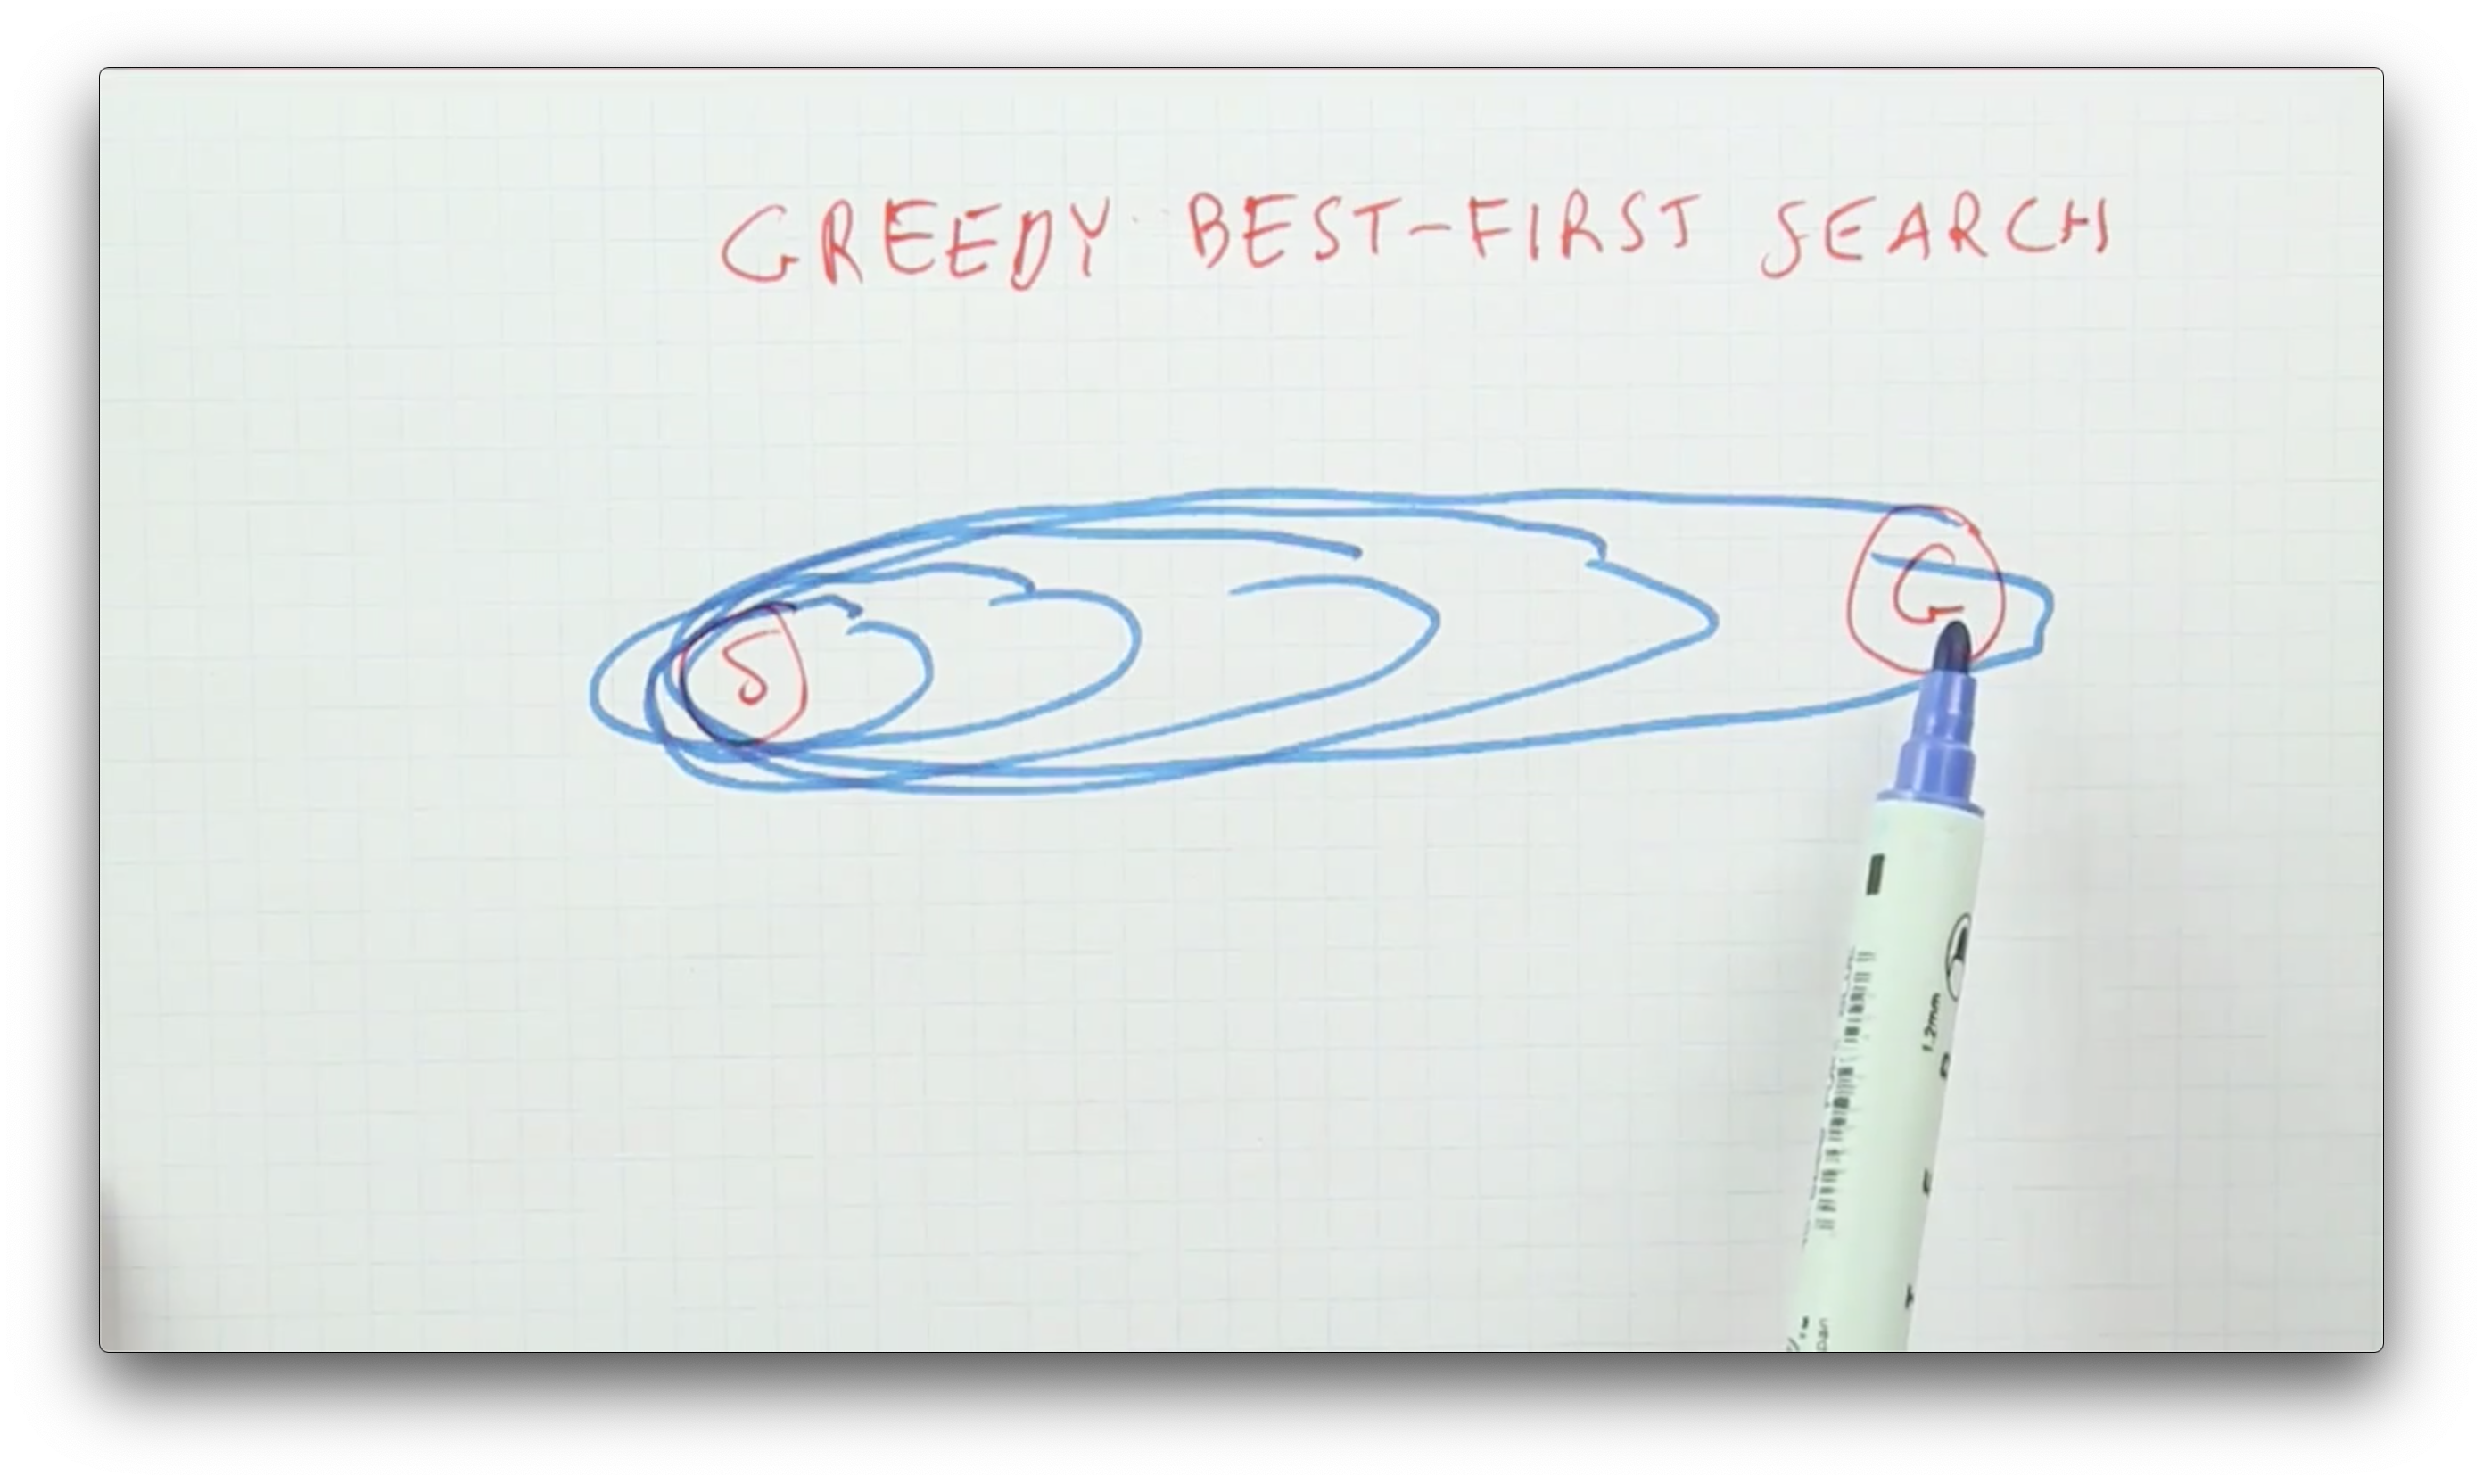 GREEDY BEST-FIRST SEARCH
S
G
1.2mm